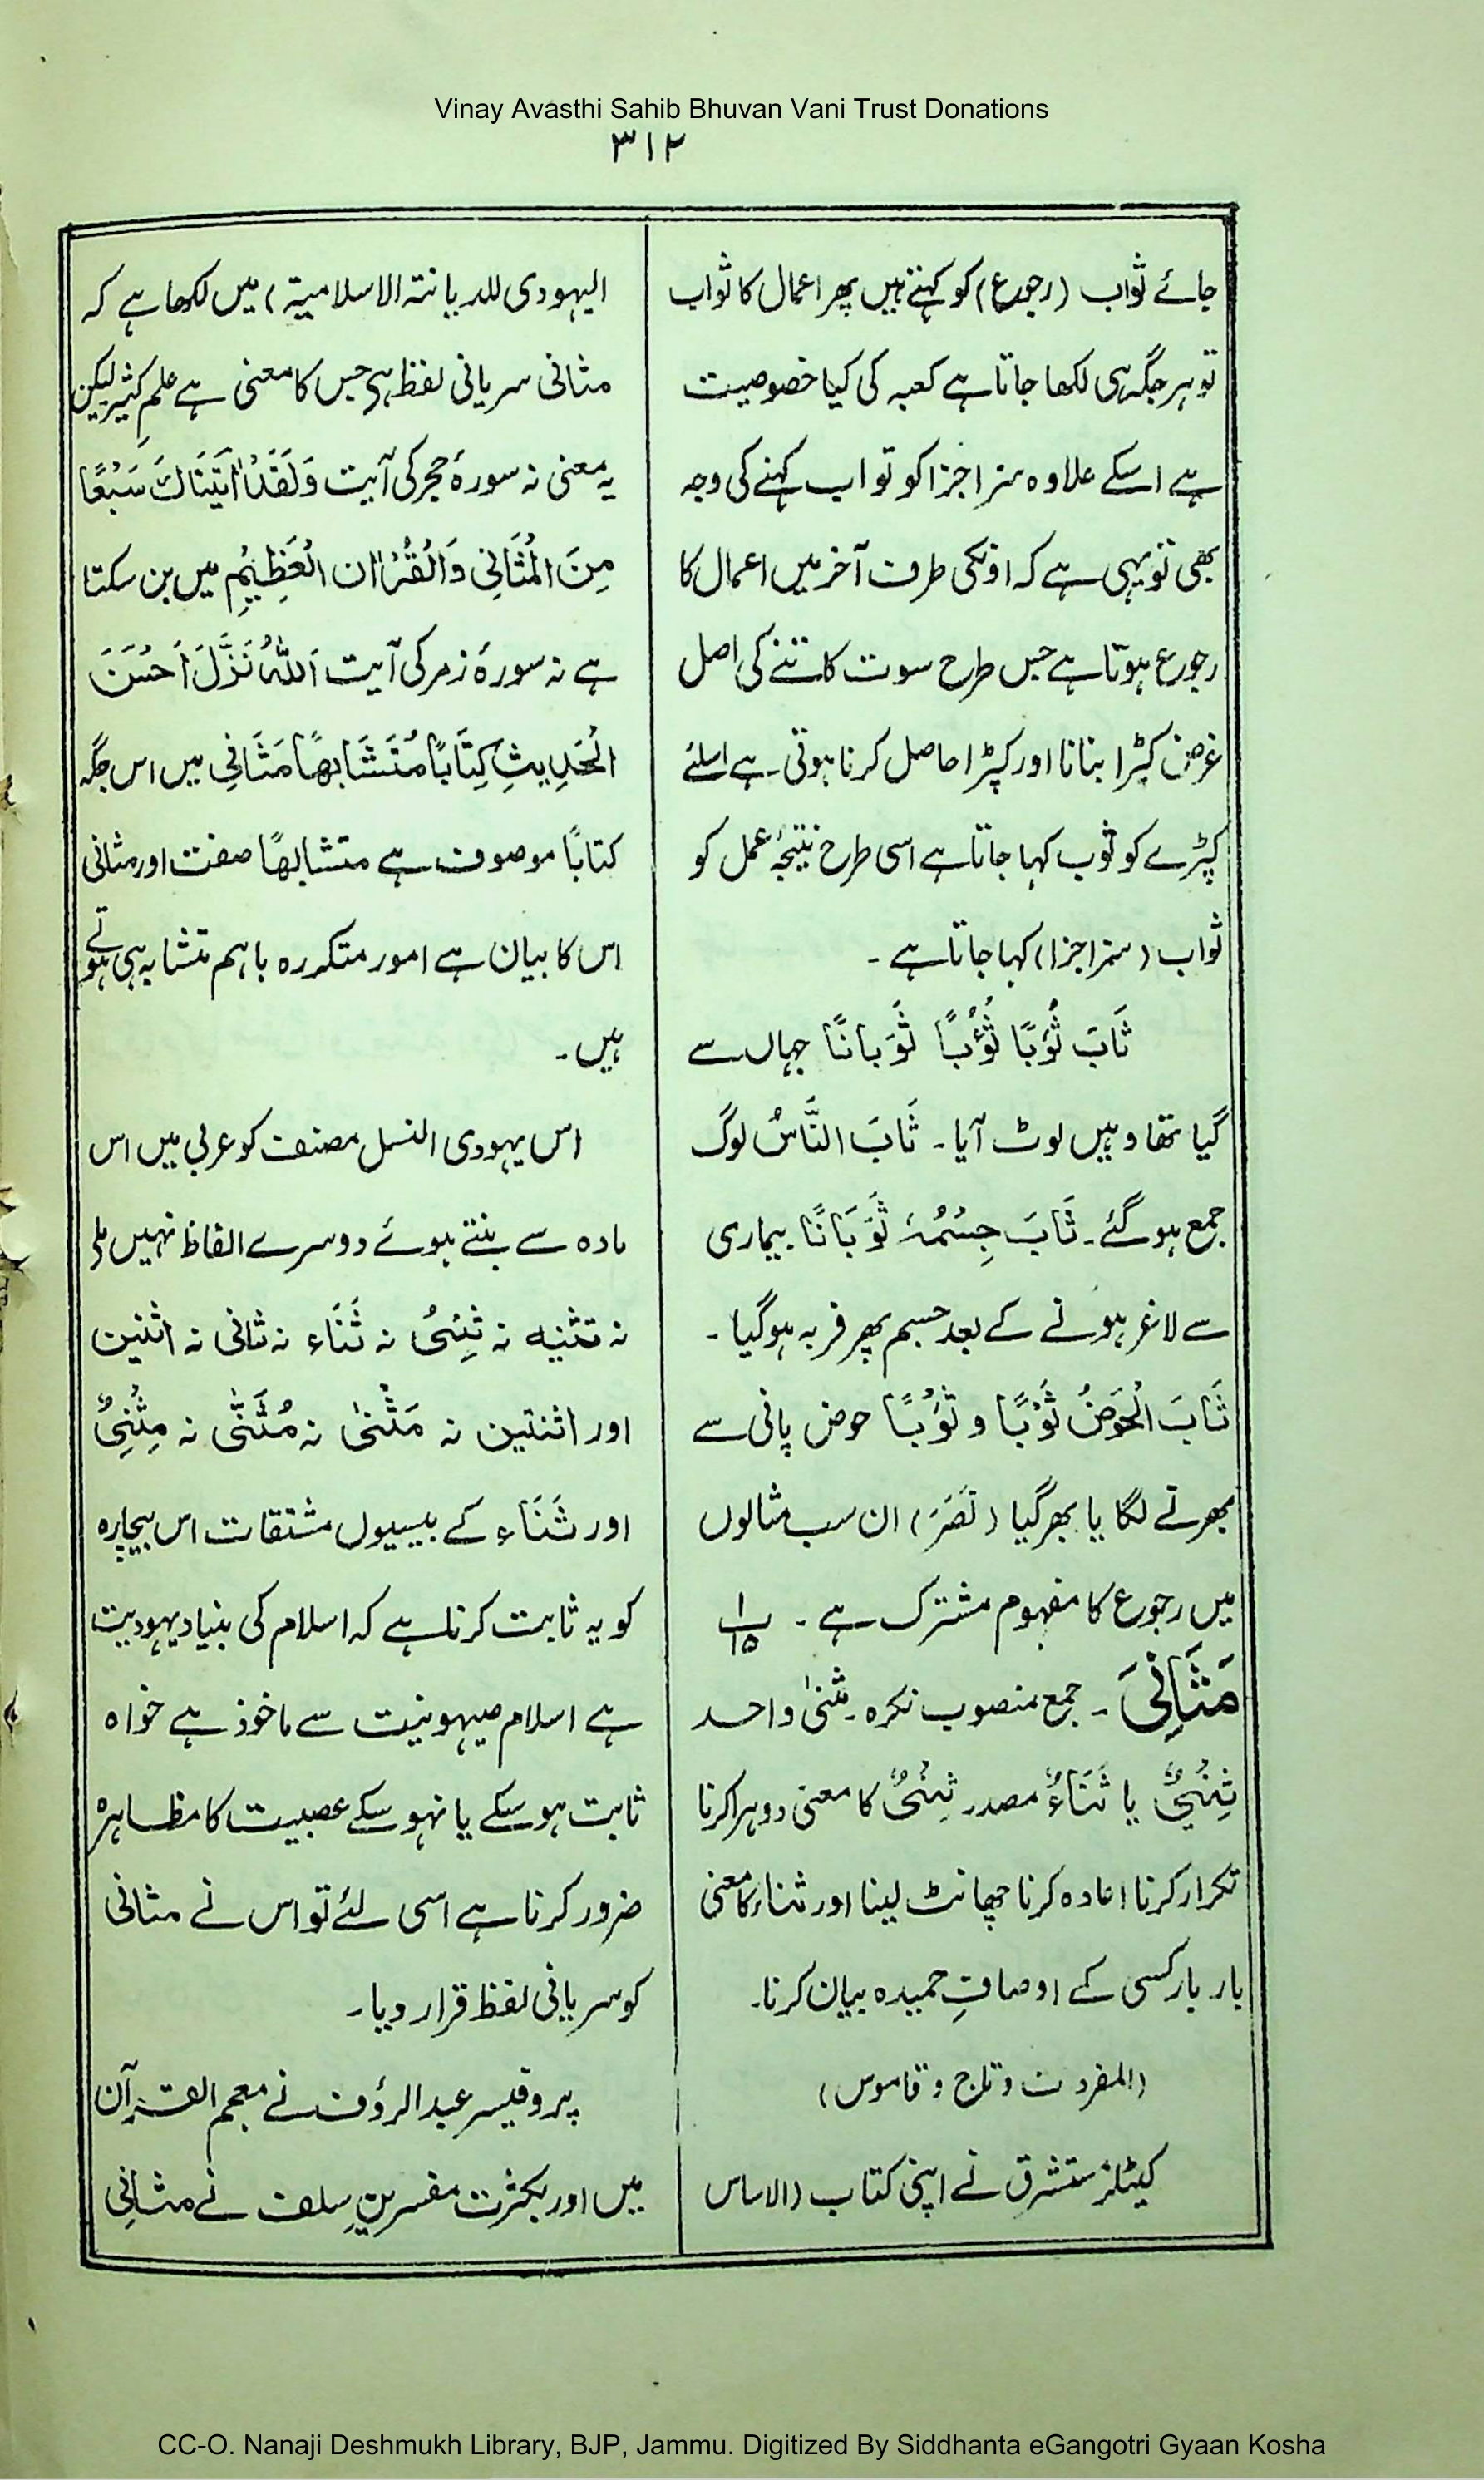 Vinay Avasthi Sahib Bhuvan Vani Trust Donations
۳۱۲
جائے ثواب (رجوع) کو کہتے ہیں پھر اعمال کا ثواب
تو ہر جگہ ہی لکھا جاتا ہے کعبہ کی کیا خصوصیت
ہے اسکے علاوہ سزا جزا کو ثواب کہنے کی وجہ
بھی تو یہی ہے کہ اونکی طرف آخر میں اعمال کا
رجوع ہوتا ہے جس طرح سوت کاتنے کی اصل
غرض کپڑا بنانا اور کپڑا حاصل کرنا ہوتی ہے اسلئے
کپڑے کو ثوب کہا جاتا ہے اسی طرح نتیجۂ عمل کو
ثواب (سزا جزا) کہا جاتا ہے ۔
ثَابَ ثُوَبًا ثُؤُبًا ثَوَبَانًا جہاں سے
گیا تھا وہیں لوٹ آیا ۔ ثَابَ النَّاسُ لوگ
جمع ہو گئے ۔ ثَابَ جِسْمُہٗ ثَوَبَانًا بیماری
سے لاغر ہونے کے بعد جسم پھر فربہ ہو گیا ۔
ثَابَ الْحَوَضُ ثَوْبًا و ثَوُبًا حوض پانی سے
بھرنے لگا یا بھر گیا (نَصَرَ) ان سب مثالوں
میں رجوع کا مفہوم مشترک ہے ۔ ۱۵
مَثَانِیَ ۔ جمع منصوب نکرہ ۔ مَثْنٰی واحد
ثِنْیٌ یا ثَنَاءٌ مصدر ثِنْیٌ کا معنی دوہرا کرنا
تکرار کرنا اعادہ کرنا چھانٹ لینا اور ثناء کا معنی
بار بار کسی کے اوصافِ حمیدہ بیان کرنا۔
(المفردت و تاج و قاموس)
کیٹلز مستشرق نے اپنی کتاب (الاساس
الیہودی للدیانتہ الاسلامیۃ) میں لکھا ہے کہ
مثانی سریانی لفظ ہے جس کا معنی ہے علمِ کثیر لیکن
یہ معنی نہ سورۂ حجر کی آیت وَلَقَدْ اٰتَیْنَاكَ سَبْعًا
مِنَ الْمَثَانِی وَالْقُرْاٰن الْعَظِیْمِ میں بن سکتا
ہے نہ سورۂ زمر کی آیت اَللّٰہُ نَزَّلَ اَحْسَنَ
الْحَدِیثِ کِتَابًا مُتَشَابِھًا مَثَانِی میں اس جگہ
کتابًا موصوف ہے متشابھًا صفت اور مثانی
اس کا بیان ہے امور متکررہ باہم متشابہ ہی ہوتے
ہیں ۔
اس یہودی النسل مصنف کو عربی میں اس
مادہ سے بنتے ہوئے دوسرے الفاظ نہیں ملے
نہ تثنیہ نہ ثِنْیُ نہ ثَنَاء نہ ثانی نہ اثنین
اور اثنتین نہ مَثْنٰی نہ مُثَنّٰی نہ مِثْنِیٌ
اور ثَنَاء کے بیسیوں مشتقات اس بیچارہ
کو یہ ثابت کرنا ہے کہ اسلام کی بنیاد یہودیت
ہے اسلام صیہونیت سے ماخوذ ہے خواہ
ثابت ہو سکے یا نہو سکے عصبیت کا مظاہرہ
ضرور کرنا ہے اسی لئے تو اس نے مثانی
کو سریانی لفظ قرار دیا ۔
پروفیسر عبدالرؤف نے معجم القرآن
میں اور بکثرت مفسرینِ سلف نے مثانِی
CC-O. Nanaji Deshmukh Library, BJP, Jammu. Digitized By Siddhanta eGangotri Gyaan Kosha